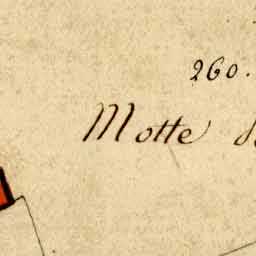 260.
Motte